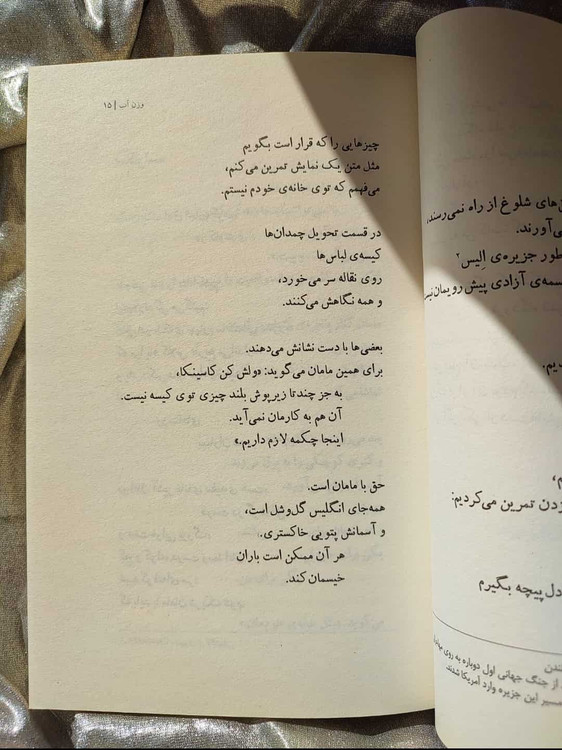 وزن آب | ۱۵
چیزهایی را که قرار است بگویم
مثل متن یک نمایش تمرین می‌کنم،
می‌فهمم که توی خانه‌ی خودم نیستم.
در قسمت تحویل چمدان‌ها
کیسه‌ی لباس‌ها
روی نقاله سر می‌خورد،
و همه نگاهش می‌کنند.
بعضی‌ها با دست نشانش می‌دهند.
برای همین مامان می‌گوید: «ولش کن کاسینکا،
به جز چندتا زیرپوش بلند چیزی توی کیسه نیست.
آن هم به کارمان نمی‌آید.
اینجا چکمه لازم داریم.»
حق با مامان است.
همه‌جای انگلیس گل‌وشل است،
و آسمانش پتویی خاکستری.
هر آن ممکن است باران
خیسمان کند.
ن‌های شلوغ از راه نمی‌رسند،
ی‌آورند.
طور جزیره‌ی اِلیس۲
سمه‌ی آزادی پیش رویمان نبو
یم.
م،
زدن تمرین می‌کردیم:
دل‌پیچه بگیرم
ندن
از جنگ جهانی اول دوباره به روی
مسیر این جزیره وارد آمریکا شدند.